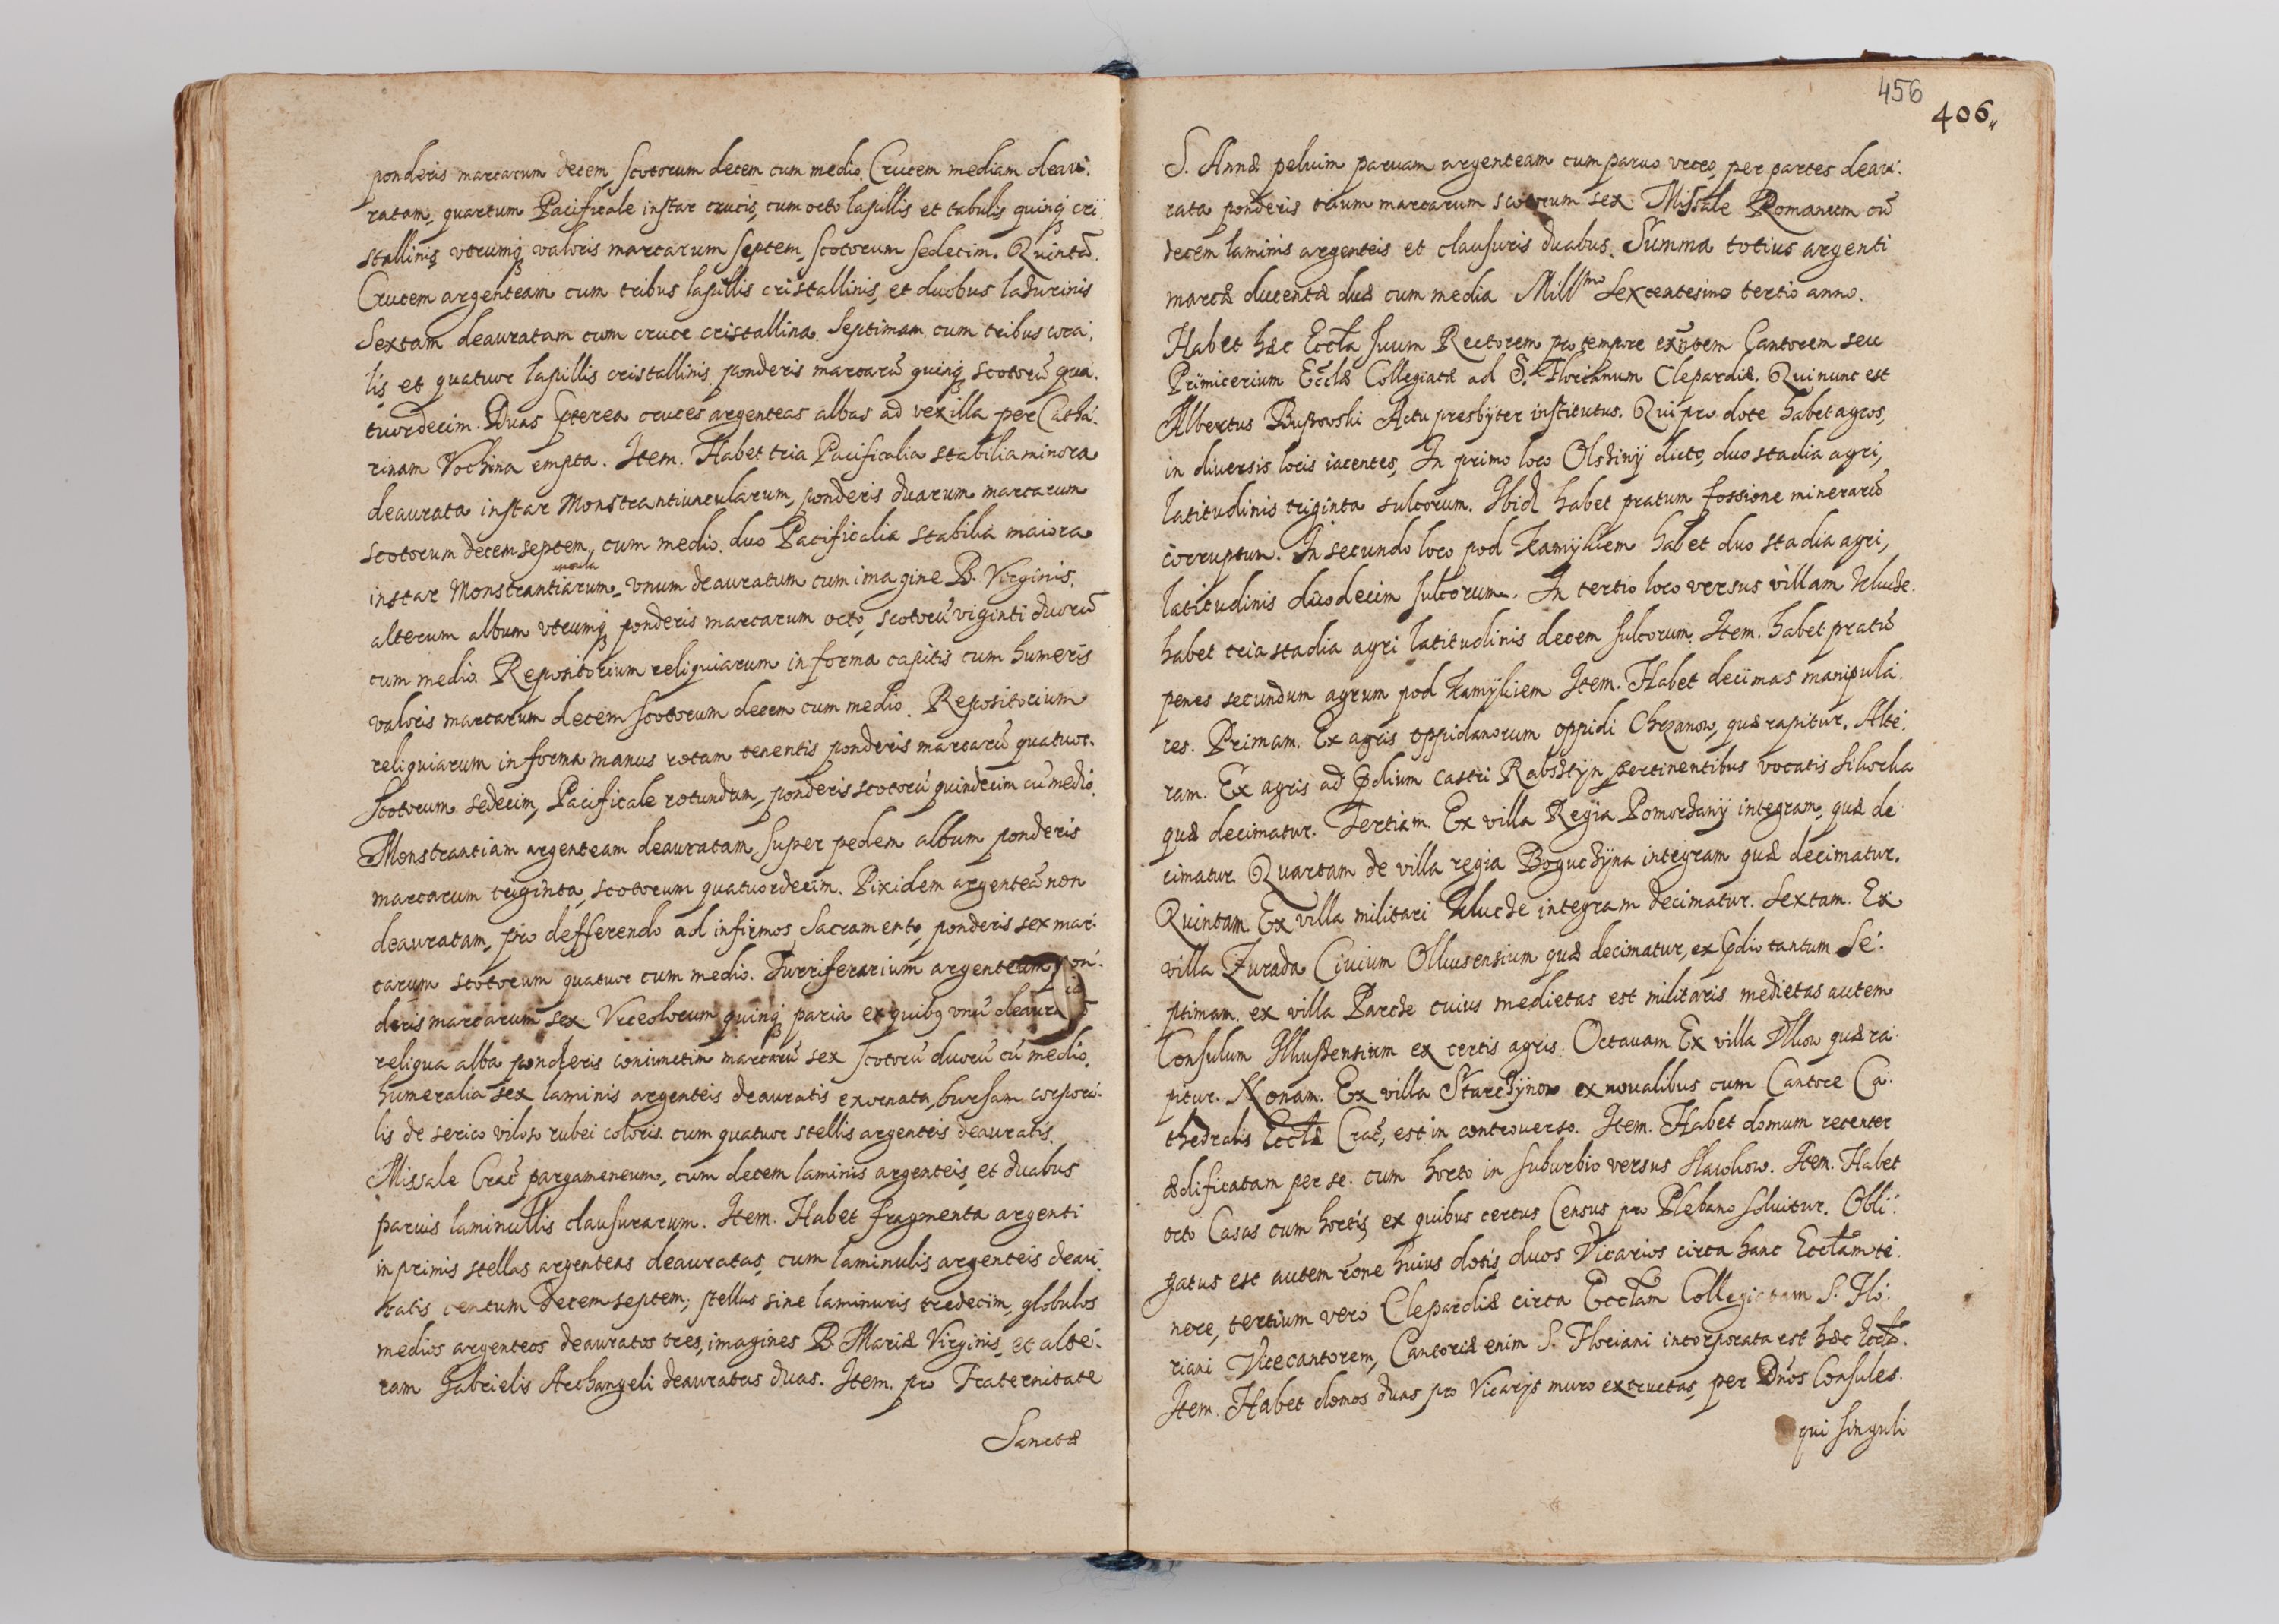 ponderis marcarum decem, scotorum decem cum medio. Crucem mediam deau:
ratam, quartum Pacificale instar crucis, cum octo lapillis et tabulis quinq3 cri
stallinis, vtrumq3 valoris marcarum septem, scotorum sedecim. Quintã.
Crucem argenteam cum tribus lapillis cristallinis, et duobus ladurinis
Sextam deauratam cum cruce cristallina. Septimam cum tribus cora:
lis et quatuor lapillis cristallinis, ponderis marcarũ quinq3 scotorũ qua.
tuordecim. Duas pterea cruces argenteas albas ad vexilla per Catha:
rinam Vochina empta. Item. Habet tria Pacificalia stabilia minora
deaurata instar Monstrantiuncularum, ponderis duarum marcarum
scotorum decem septem, cum medio. duo Pacificalia stabilia maiora
instar Monstrantiarum, vnum deauratum cum imagine B. Virginis.
alterum album vtrumq3 ponderis marcarum octo, scotorũ viginti duorũ
cum medio. Repositorium reliquiarum in forma capitis cum humeris
valoris marcarum decem scotorum decem cum medio. Repositorium
reliquiarum in forma manus rotam tenentis ponderis marcarũ quatuor.
scotorum sedecim, Pacificale rotundum, ponderis scotorũ quindecim cũ medio.
Monstrantiam argenteam deauratam, super pedem album ponderis
marcarum triginta, scotorum quatuordecim. Pixidem argenteã non
deauratam, pro defferendo ad infirmos Sacramento, ponderis sex mar:
carum scotorum quatuor cum medio. Turriferarium argenteum pon:
deris marcarum sex. Vrceolorum quinq3 paria ex quib9 vnũ deaura
reliqua alba ponderis coniunctim marcarũ sex scotorũ duorũ cũ medio.
humeralia sex laminis argenteis deauratis exornata, bursam corpora:
lis de serico viloso rubei coloris. cum quatuor stellis argenteis deauratis.
Missale Crac̃ pargameneum, cum decem laminis argenteis, et duabus
paruis laminullis clausurarum. Item. Habet fragmenta argenti
in primis stellas argenteas deauratas, cum laminulis argenteis deau:
ratis centum decem septem; stellas sine laminuris tredecim, globulos
medios argenteos deauratos tres, imagines B. Mariæ Virginis, et alte:
ram Gabrielis Archangeli deauratas duas. Item. pro Fraternitate
Sanctæ
456
406,,
S. Annæ peluim paruam argenteam cum paruo vrceo, per partes deau:
rata ponderis trium marcarum scotorum sex. Missale Romanum cũ
decem laminis argenteis et clausuris duabus. Summa totius argenti
marcæ ducentæ duæ cum media Mill.mo Sexcentesimo tertio anno.
Habet hæc Eccl̃a suum Rectorem pro tempore exñtem Cantorem seu
Primicerium Eccl̃æ Collegiatæ ad S. Florianum Clepardiæ. Qui nunc est
Albertus Bużowski Actu presbÿter institutus. Qui pro dote habet agros,
in diuersis locis iacentes, In primo loco Olsdinÿ dicto, duo stadia agri,
latitudinis triginta sulcorum. Ibid habet pratum fossione minerarũ
corruptum. In secundo loco pod Kamÿkiem habet duo stadia agri,
latitudinis duodecim sulcorum. In tertio loco versus villam Klucze.
habet tria stadia agri latitudinis decem sulcorum. Item. habet pratũ
penes secundum agrum pod Kamÿkiem Item. Habet decimas manipula:
res. Primam. Ex agris oppidanorum oppidi Chrzanow, quæ rapitur. Alte:
ram. Ex agris ad p̃dium castri Rabsztÿn pertinentibus vocatis Sikorka
quæ decimatur. Tertiam. Ex villa Regia Pomorzanÿ integram, quæ de
cimatur. Quartam de villa regia Bogucdÿna integram quæ decimatur.
Quintam Ex villa militari Klucze integram decimatur. Sextam. Ex
villa Zurada Ciuium Olkusensium quæ decimatur, ex p̃dio tantum Se:
ptimam. ex villa Parcze cuius medietas est militaris medietas autem
Consulum Ilkusdensium ex certis agris. Octauam. Ex villa quæ ra:
pitur. Nonam. Ex villa Starczÿnow ex noualibus cum Cantore Ca:
thedralis Eccl̃æ Crac̃, est in controuerso. Item. Habet domum recenter
ædificatam per se. cum horto in suburbio versus Slawkow. Item. Habet
octo Casas cum hortis, ex quibus certus Census pro Plebano soluitur. Obli:
gatus est autem rõne huius dotis, duos Vicarios circa hanc Eccl̃am te:
nere, tertium vero Clepardiæ circa Eccl̃am Collegiatam S. Flo:
riani Vicecantorem, Cantoriæ enim S. Floriani incorporata est hæc Eccl̃a.
Item. Habet domos duas pro Vicarÿs muro extructas, per Dños Consules.
qui singuli